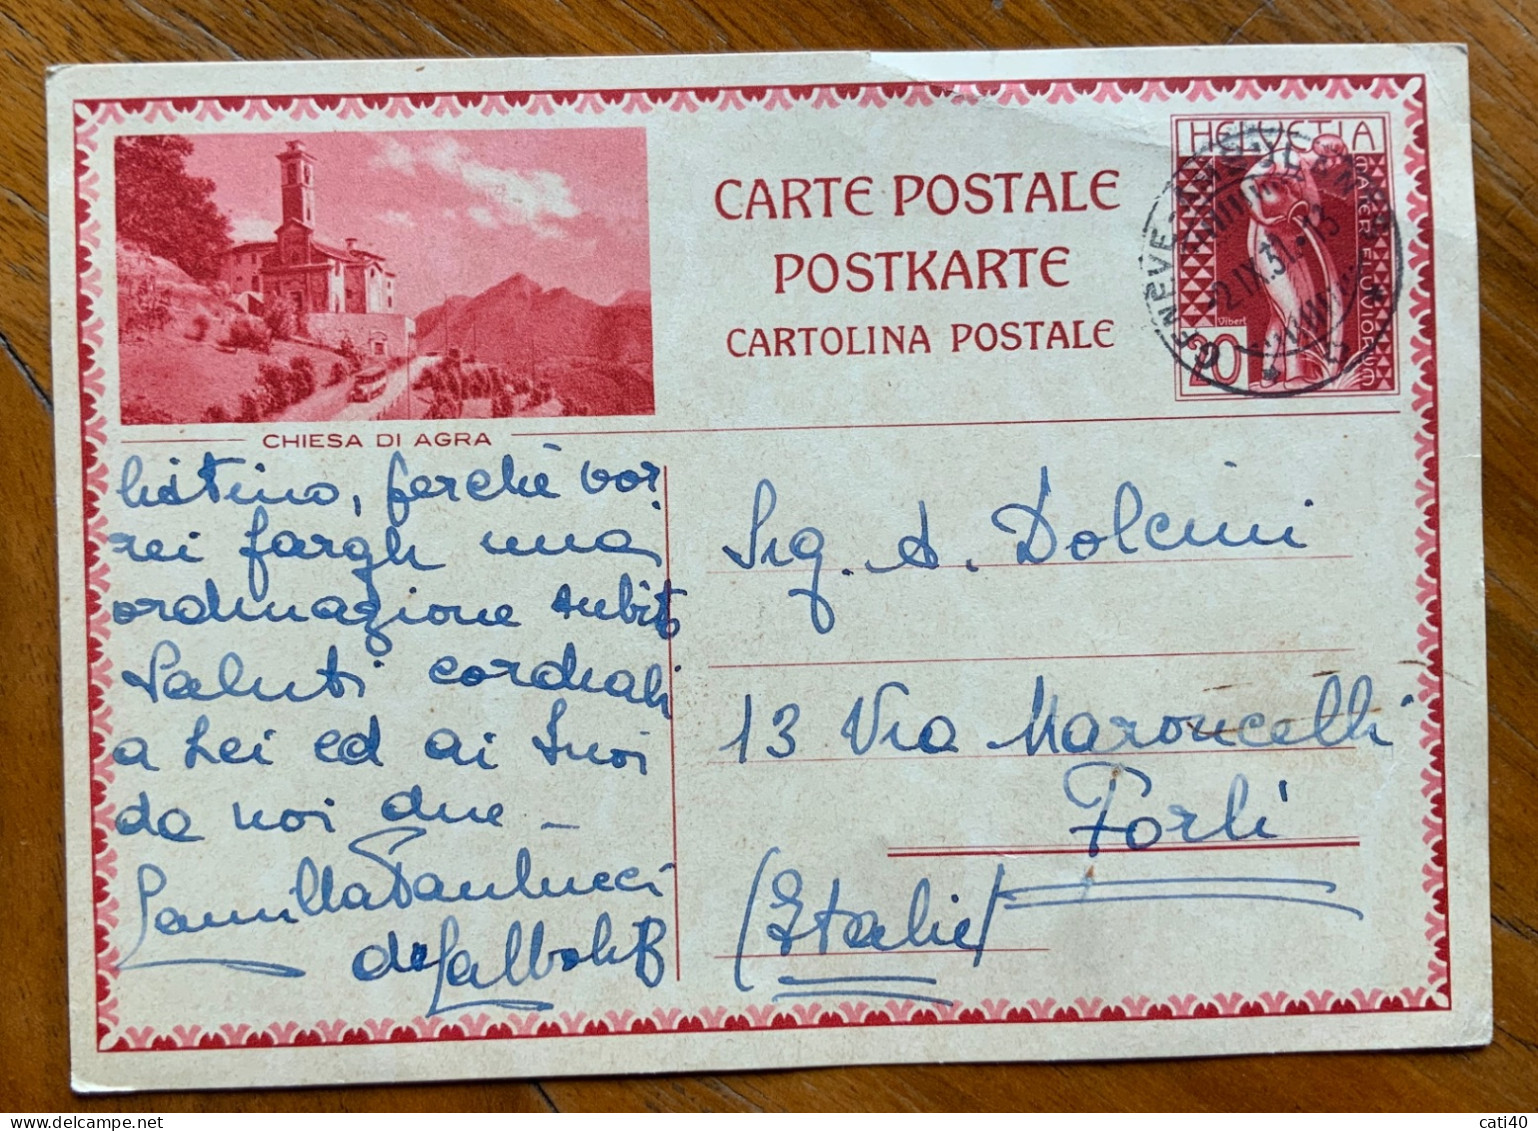 CARTE POSTALE
POSTKARTE
CARTOLINA POSTALE
HELVETIA
MATER FLUVIORUM
Vibert
20
GENEVE
2.IX.31.-13
CHIESA DI AGRA
listino, perchè vor
rei fargli una
ordinazione subito
Saluti cordiali
a Lei ed ai Suoi
da noi due -
Camilla Paulucci
di Calboli B
Sig. A. Dolcini
13 Via Maroncelli
Forlì
(Italie)
cati40